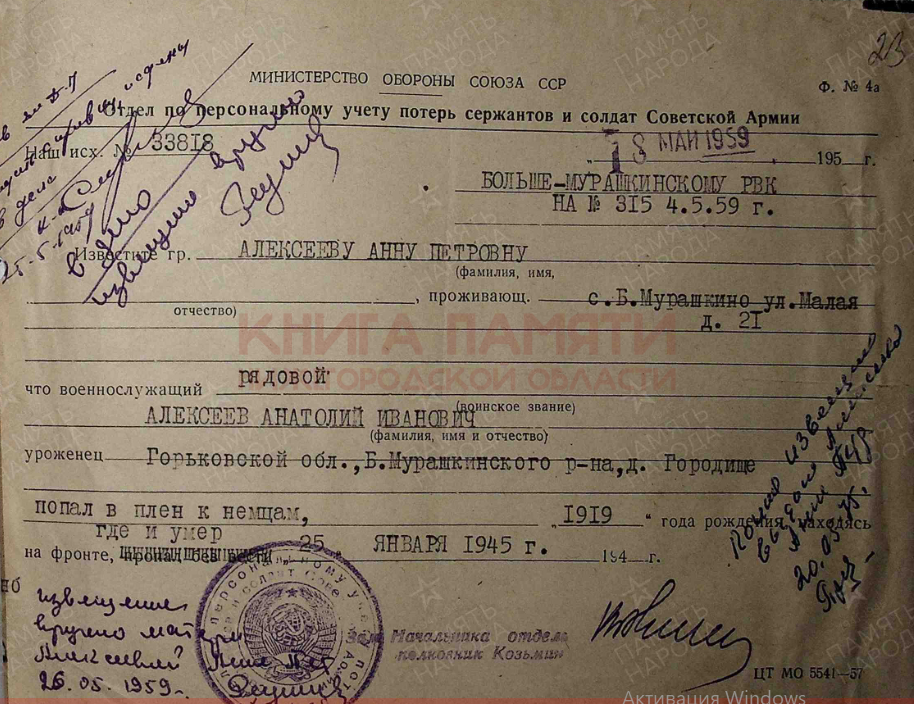 23
МИНИСТЕРСТВО ОБОРОНЫ СОЮЗА ССР
Ф. № 4а
Отдел по персональному учету потерь сержантов и солдат Советской Армии
Наш исх. № 33818
18 МАЙ 1959 195 г.
БОЛЬШЕ-МУРАШКИНСКОМУ РВК
НА № 315 4.5.59 г.
25.5.1959
в дело
извещение вручено
Известите гр. АЛЕКСЕЕВУ АННУ ПЕТРОВНУ
(фамилия, имя,
отчество) , проживающ. с.Б.Мурашкино ул.Малая
д. 21
КНИГА ПАМЯТИ
НИЖЕГОРОДСКОЙ ОБЛАСТИ
что военнослужащий рядовой
(воинское звание)
АЛЕКСЕЕВ АНАТОЛИЙ ИВАНОВИЧ
(фамилия, имя и отчество)
уроженец Горьковской обл.,Б.Мурашкинского р-на,д. Городище
попал в плен к немцам, „1919“ года рождения, находясь
где и умер
на фронте, пропал без вести 25. ЯНВАРЯ 1945 г. 194 г.
извещение
вручено матери
Алексеевой Анне Пет
26.05.1959
Зам. Начальника отдела
полковник Козьмин
извещение
20.05.75.
ЦТ МО 5541—57
ПАМЯТЬ НАРОДА
Активация Windows